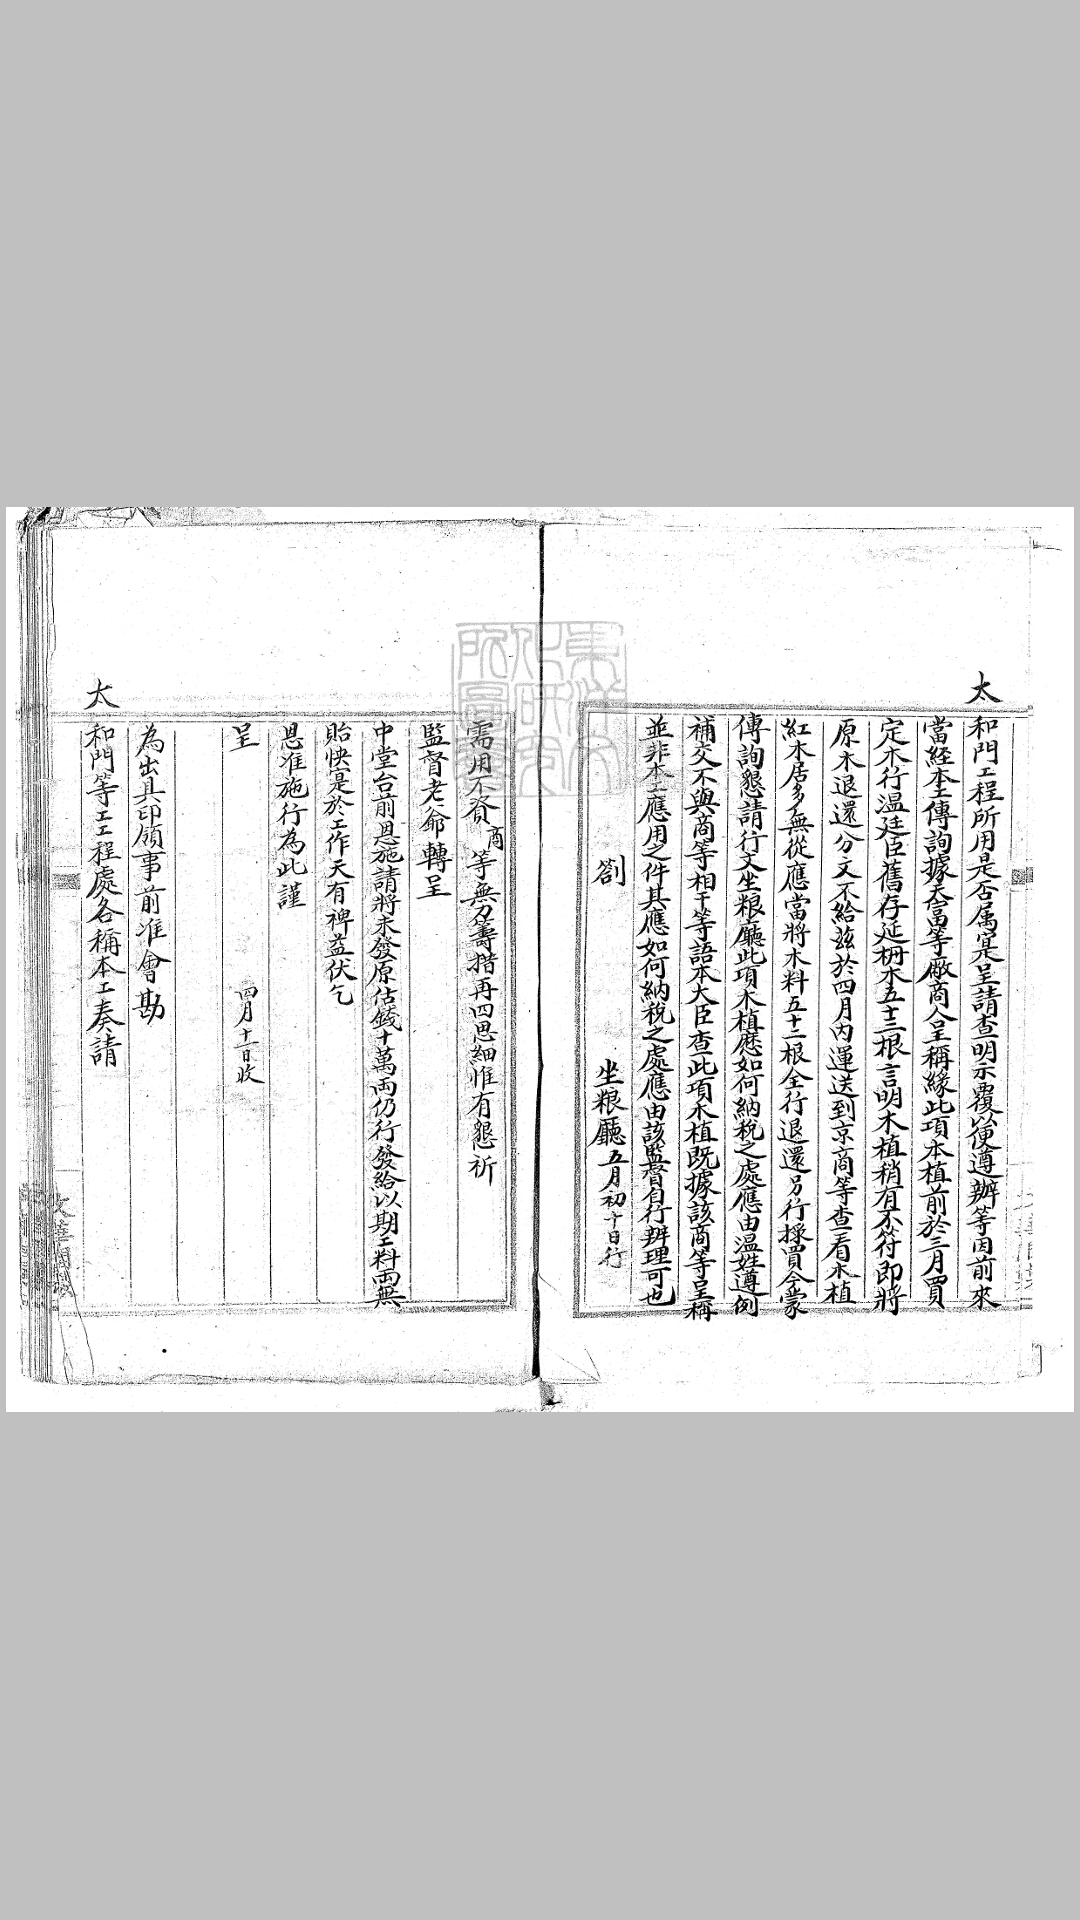 太和門工程所用是否属寔呈請查明示覆以便遵辦等因前來
當經本工傳詢據天富等廠商人呈稱緣此項木植前於三月買
定木行溫廷臣舊存延柵木五十三根言明木植稍有不符即將
原木退還分文不給兹於四月内運送到京商等查看木植
紅木居多無從應當將木料五十二根全行退還另行採買今蒙
傳詢懇請行文坐粮廳此項木植應如何納稅之處應由溫姓遵例
補交不與商等相干等語本大臣查此項木植既據該商等呈稱
並非本工應用之件其應如何納稅之處應由該監督自行辦理可也
劄 坐粮廳 五月初十日行
需用不資商等無力籌措再四思細惟有懇祈
監督老爺轉呈
中堂台前恩施請將未發原估錢十萬両仍行發給以期工料両無
貽悞寔於工作大有裨益伏乞
恩准施行為此謹
呈 四月十一日收
為出具印領事前准會勘
太和門等工工程處各稱本工奏請